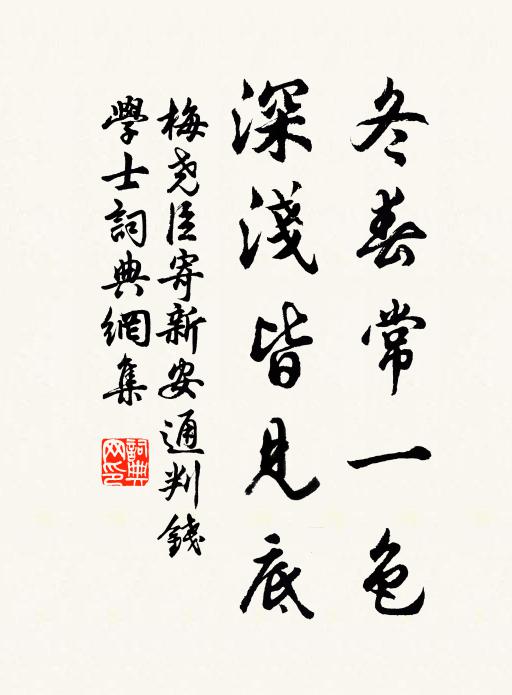 冬春常一色
深淺皆見底
梅堯臣寄新安通判錢
學士詞典網集
詞典網印